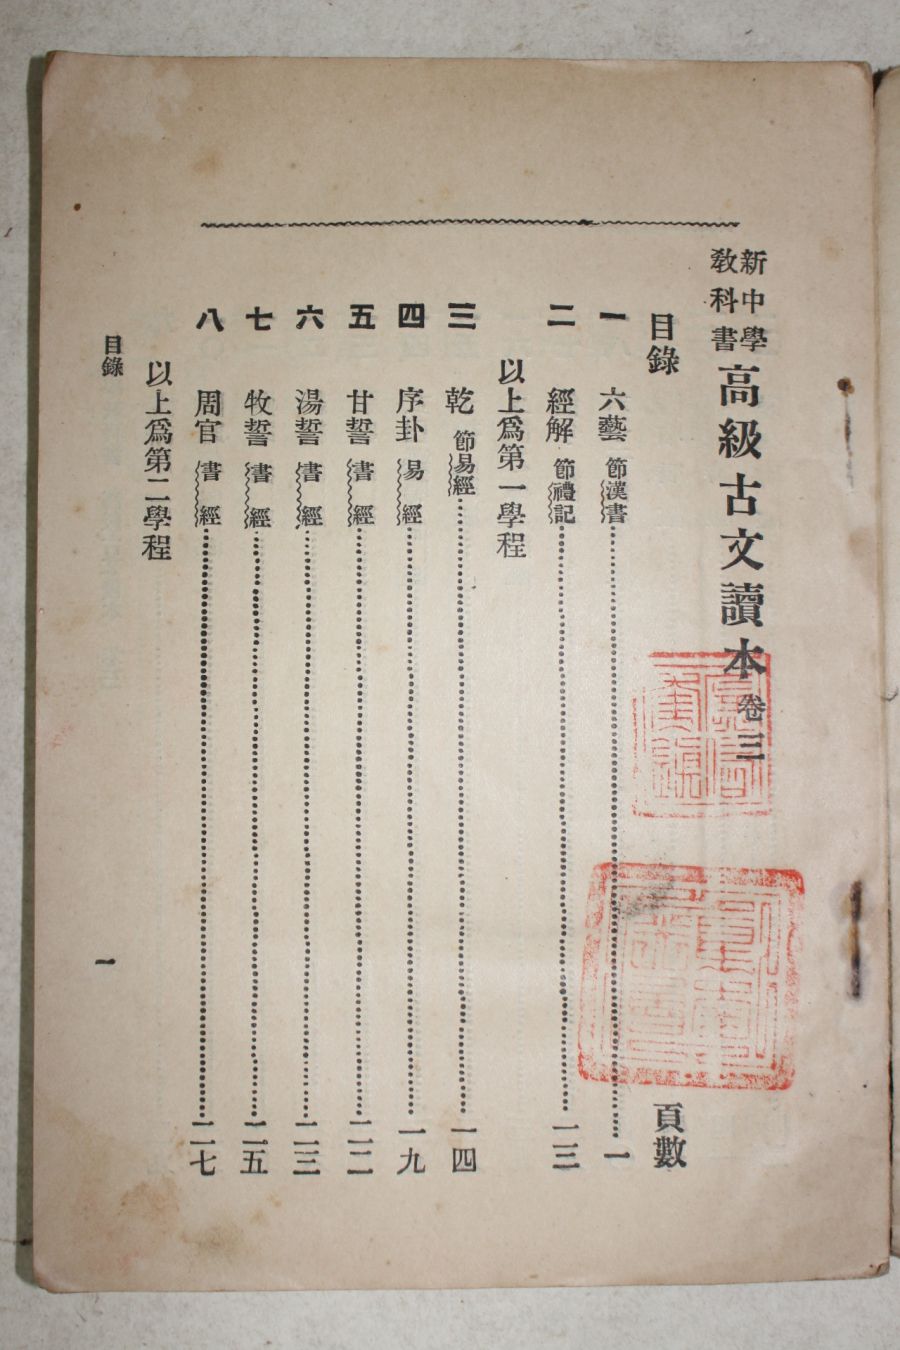 新中學教科書高級古文讀本卷三
目錄 頁數
一 六藝 節漢書 一
二 經解 節禮記 一三
以上爲第一學程
三 乾 節易經 一四
四 序卦 易經 一九
五 甘誓 書經 二二
六 湯誓 書經 二三
七 牧誓 書經 二五
八 周官 書經 二七
以上爲第二學程
目錄 一